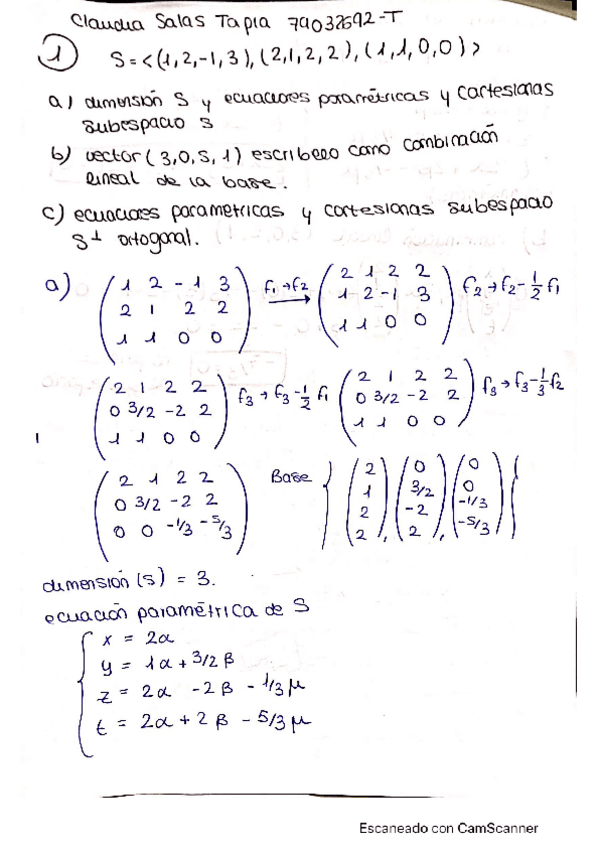 Claudia Salas Tapia 79032692-T
① S = <(1, 2, -1, 3), (2, 1, 2, 2), (1, 1, 0, 0)>
a) dimensión S y ecuaciones paramétricas y cartesianas
subespacio S
b) vector (3, 0, 5, 1) escribelo como combinación
lineal de la base.
c) ecuaciones parametricas y cartesianas subespacio
S⊥ ortogonal.
a) (1 2 -1 3 / 2 1 2 2 / 1 1 0 0) f1→f2 (2 1 2 2 / 1 2 -1 3 / 1 1 0 0) f2→f2-1/2 f1
(2 1 2 2 / 0 3/2 -2 2 / 1 1 0 0) f3→f3-1/2 f1 (2 1 2 2 / 0 3/2 -2 2 / 1 1 0 0) f3→f3-1/3 f2
(2 1 2 2 / 0 3/2 -2 2 / 0 0 -1/3 -5/3) Base { (2 1 2 2), (0 3/2 -2 2), (0 0 -1/3 -5/3) {
dimensión (S) = 3.
ecuación paramétrica de S
x = 2α
y = 1α + 3/2 β
z = 2α - 2β - 1/3 μ
t = 2α + 2β - 5/3 μ
Escaneado con CamScanner